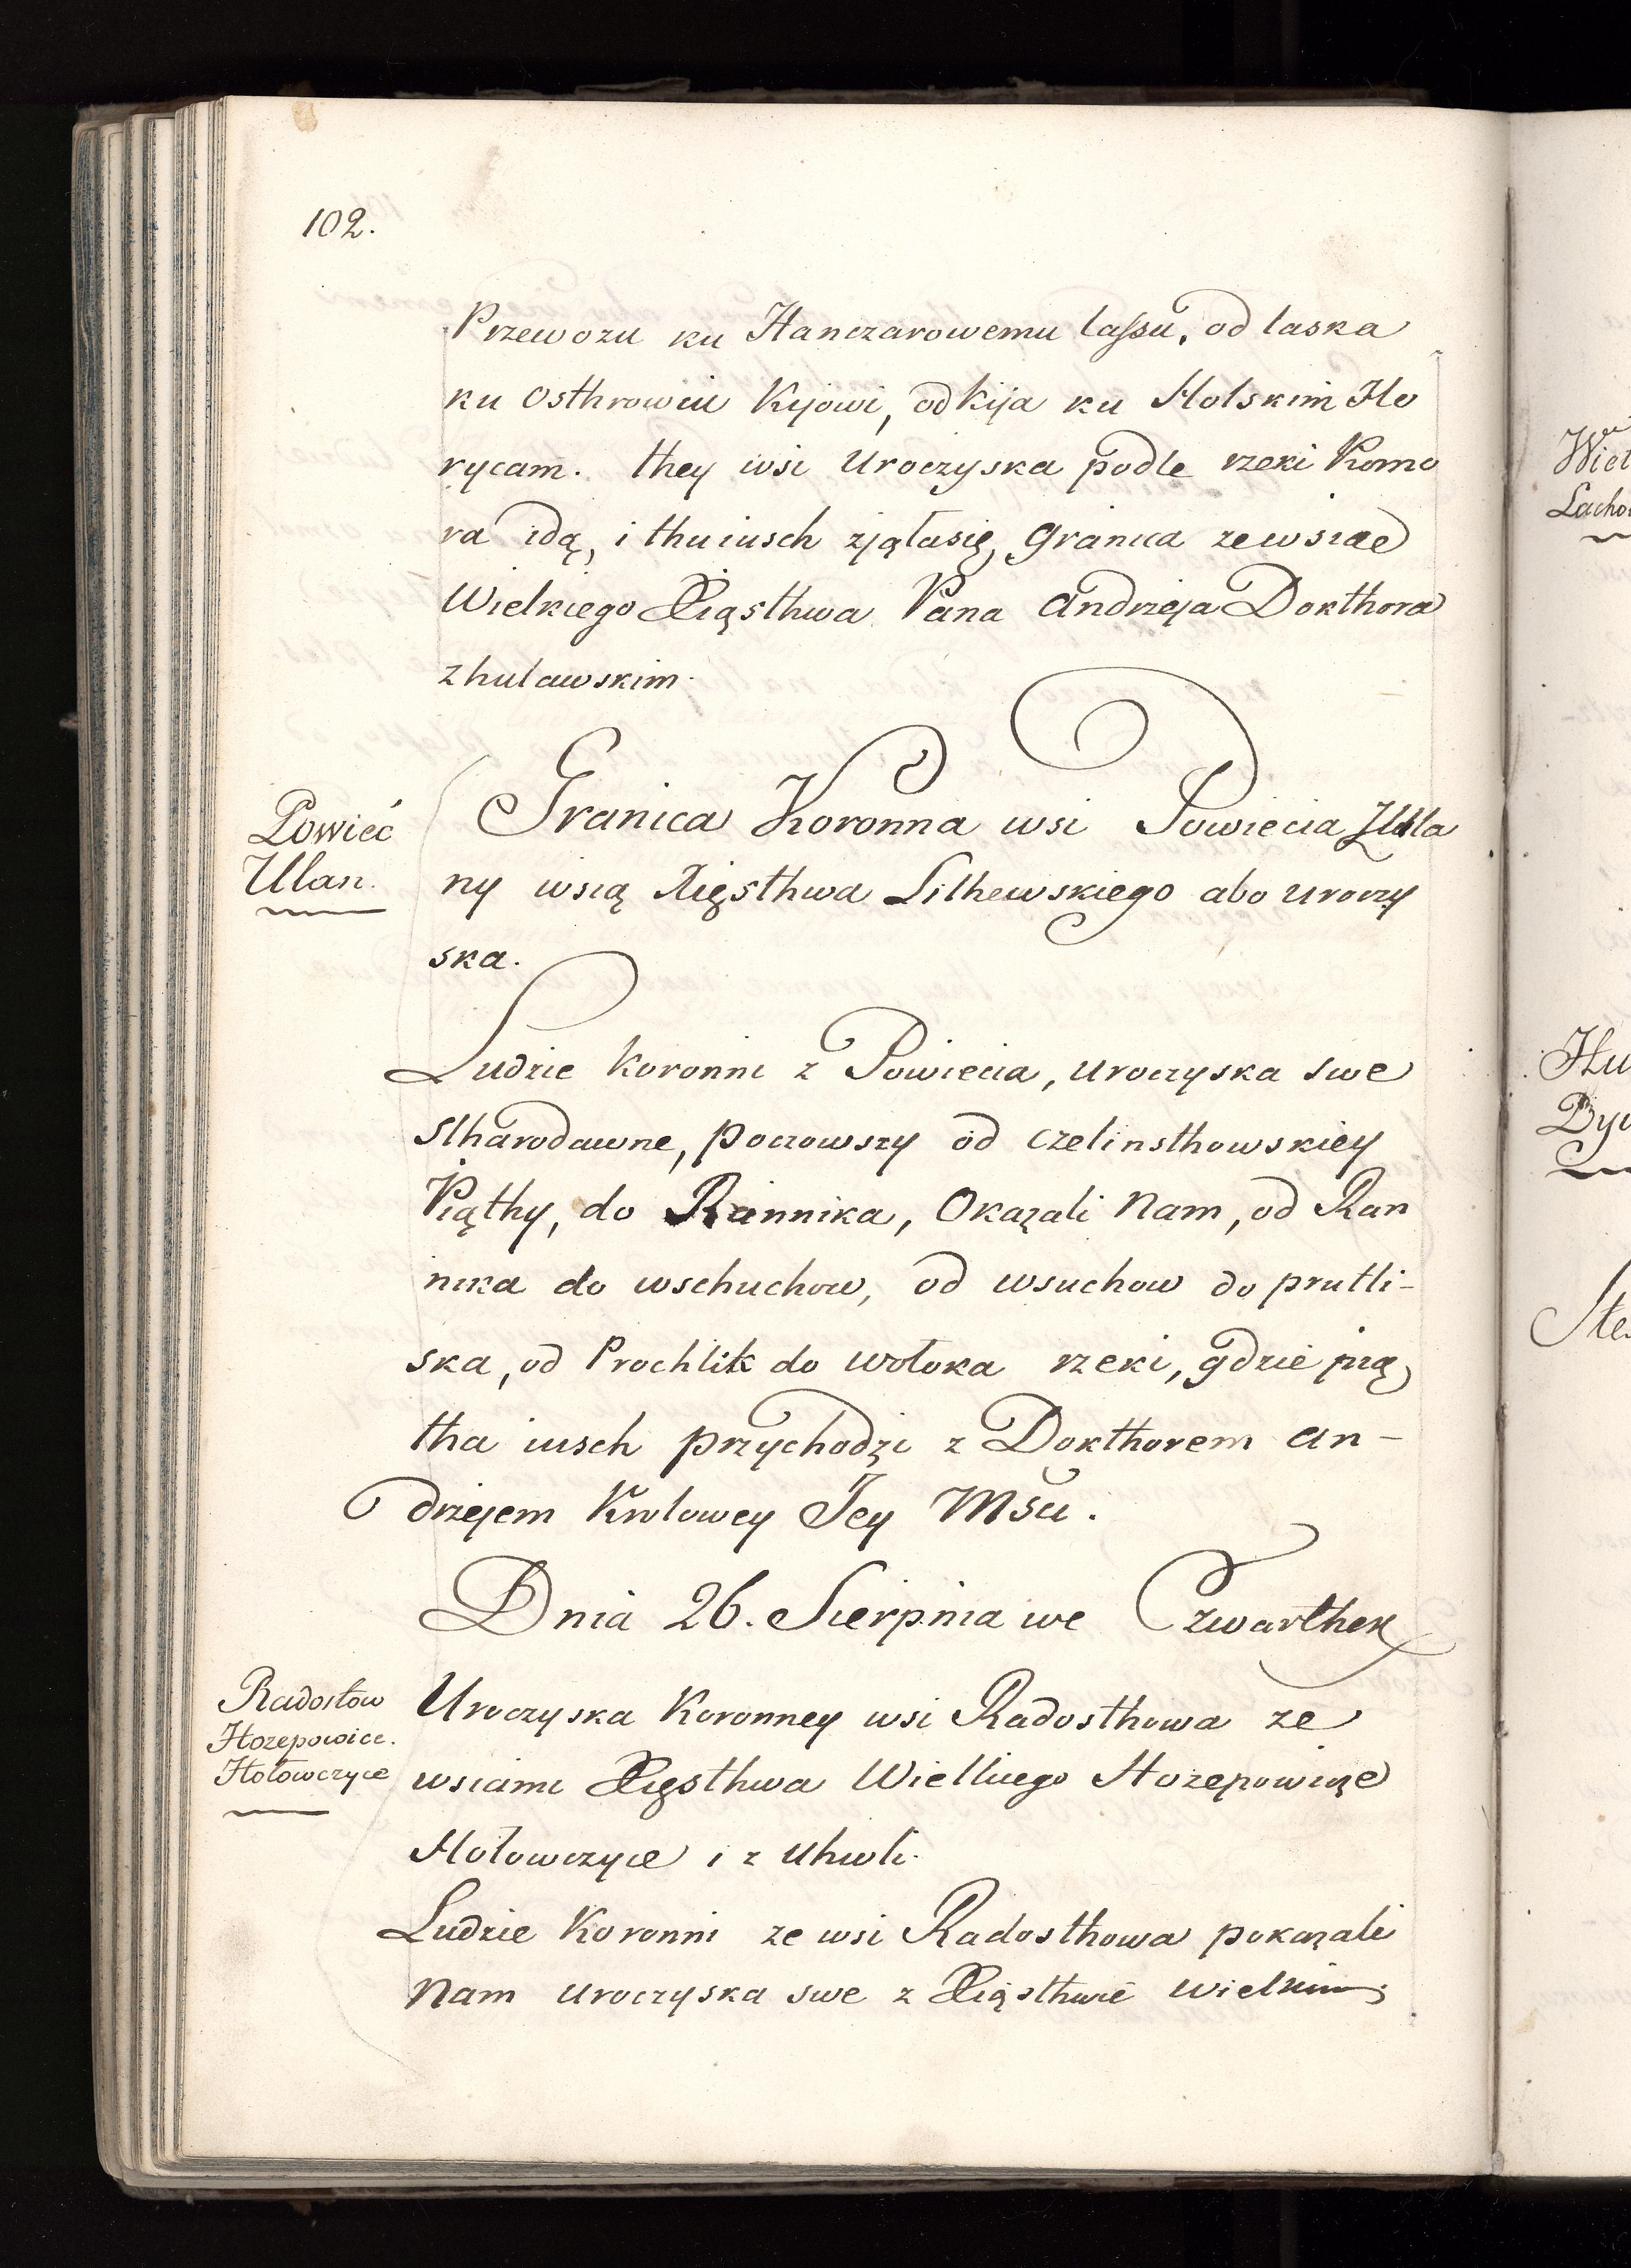 102.
Przewozu ku Hanczarowemu lassu, od laska
ku Osthrowcu Kijowi, od Kija ku Holskim Ho
rycam. they wsi Uroczyska podle rzeki Komo
ra idą, i thu iusch zjąłasię granica ze wsiae
Wielkiego Xiąsthwa Pana Andrzeja Dokthora
z hulawskim.
Powieć
Ulan.
Granica Koronna wsi Powiecia z Ula
ny wsią Xięsthwa Lithewskiego abo uroczy
ska.
Ludzie Koronni z Powiecia, uroczyska swe
stharodawne, poczowszy od czelinsthowskiey
Piąthy, do Rannika, Okazali Nam, od Ran
nika do wschuchow, od wsuchow do prutli-
ska, od Prochlik do wołoka rzeki, gdzie pią
tha iusch przychodzi z Dokthorem an-
drzejem Krolowey Jey Msci.
Dnia 26. Sierpnia we Czwarthek
Radostow
Hozepowice.
Hołowczyce
Uroczyska Koronney wsi Radosthowa ze
wsiami Xięsthwa Wielkiego Hozepowicze
Hołowczyce i z Uhwli.
Ludzie Koronni ze wsi Radosthowa pokazali
Nam uroczyska swe z Xiąsthwie Wielkim
Wiel
Lacho
Hu
Dyw
Ste